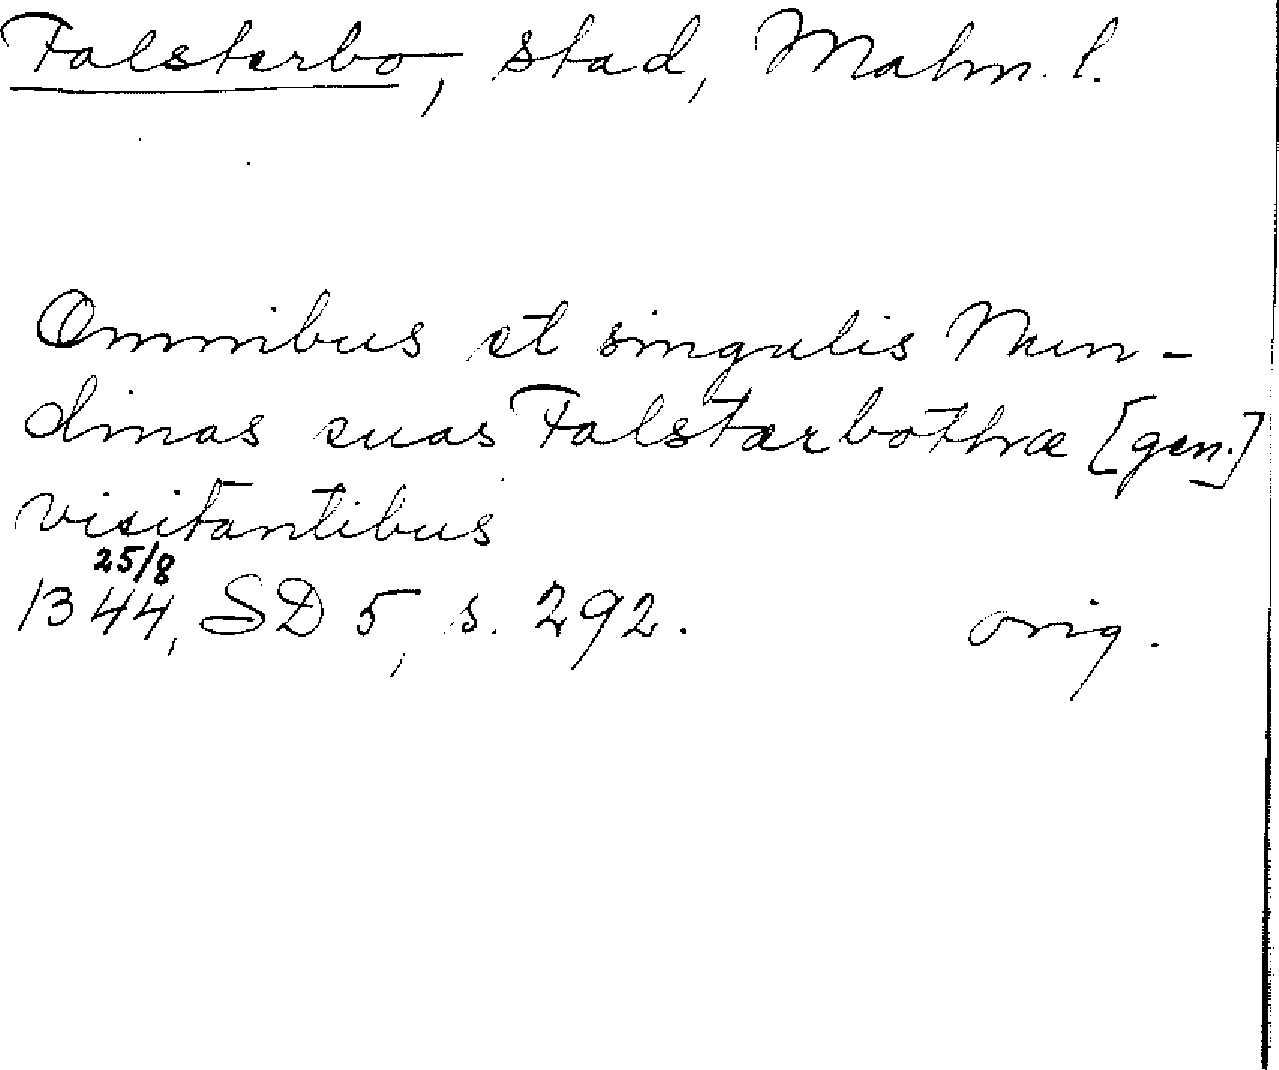 Falsterbo, stad, Malm. l.
Omnibus et singulis Mun-
dinas suas Falstærbothræ [gen.]
visitantibus
25/8
1344, SD 5, s. 292. orig.